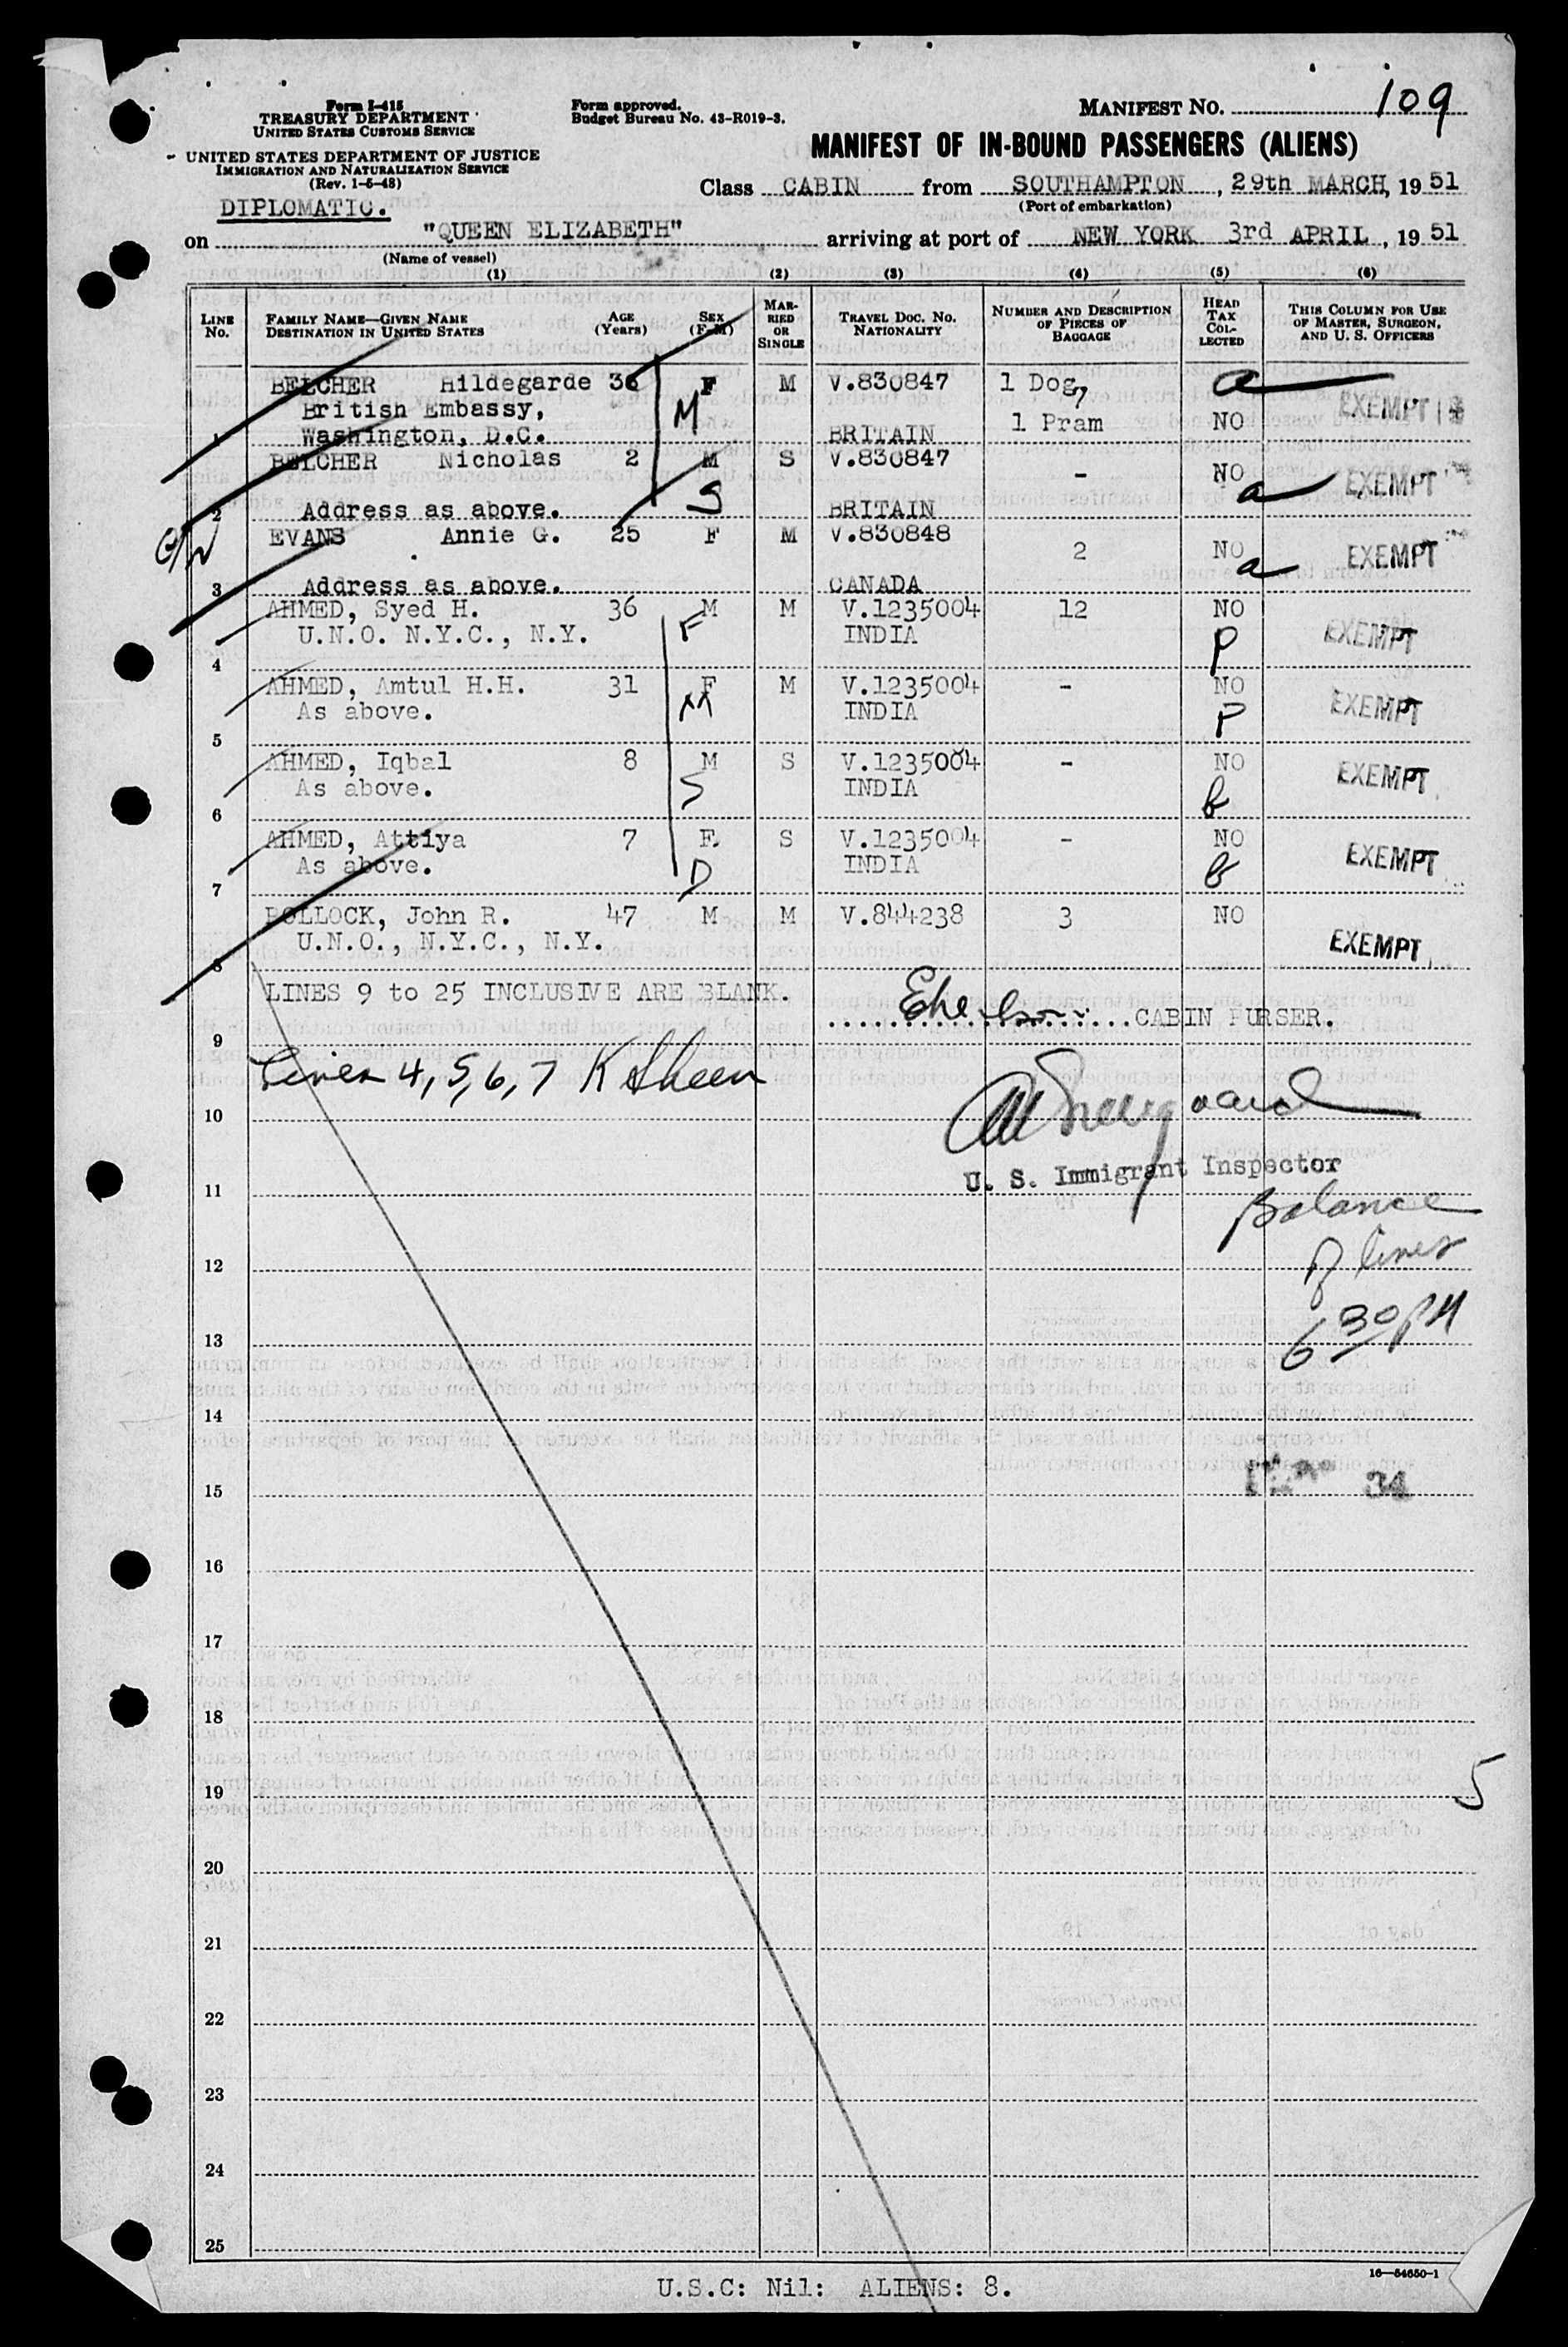 Form I-415
TREASURY DEPARTMENT
UNITED STATES CUSTOMS SERVICE
UNITED STATES DEPARTMENT OF JUSTICE
IMMIGRATION AND NATURALIZATION SERVICE
(Rev. 1-5-48)
DIPLOMATIC.
Form approved.
Budget Bureau No. 43-R019-3.
MANIFEST NO. 109
MANIFEST OF IN-BOUND PASSENGERS (ALIENS)
Class CABIN from SOUTHAMPTON, 29th MARCH, 1951
(Port of embarkation)
on "QUEEN ELIZABETH" arriving at port of NEW YORK 3rd APRIL, 1951
(Name of vessel)
(1) (2) (3) (4) (5) (6)
LINE NO. FAMILY NAME—GIVEN NAME DESTINATION IN UNITED STATES AGE (Years) SEX (F-M) MARRIED OR SINGLE TRAVEL DOC. NO. NATIONALITY NUMBER AND DESCRIPTION OF PIECES OF BAGGAGE HEAD TAX COLLECTED THIS COLUMN FOR USE OF MASTER, SURGEON, AND U. S. OFFICERS
BELCHER Hildegarde 36 F M V.830847 1 Dog, a
British Embassy, M 1 Pram NO EXEMPT
1 Washington, D.C. BRITAIN
BELCHER Nicholas 2 M S V.830847 - NO EXEMPT
S a
2 Address as above. BRITAIN
EVANS Annie G. 25 F M V.830848 2 NO EXEMPT
a
3 Address as above. CANADA
AHMED, Syed H. 36 M M V.1235004 12 NO EXEMPT
U.N.O. N.Y.C., N.Y. F INDIA P
4
AHMED, Amtul H.H. 31 F M V.1235004 - NO EXEMPT
As above. M INDIA P
5
AHMED, Iqbal 8 M S V.1235004 - NO EXEMPT
As above. S INDIA b
6
AHMED, Attiya 7 F. S V.1235004 - NO EXEMPT
As above. D INDIA b
7
POLLOCK, John R. 47 M M V.844238 3 NO
U.N.O., N.Y.C., N.Y. EXEMPT
8
LINES 9 to 25 INCLUSIVE ARE BLANK.
CABIN PURSER.
9
Lines 4, 5, 6, 7
10
U. S. Immigrant Inspector
11
Balance
of lines
12
6 30 PM
13
14
34
15
16
17
18
19
5
20
21
22
23
24
25
16—54650-1
U.S.C: Nil: ALIENS: 8.